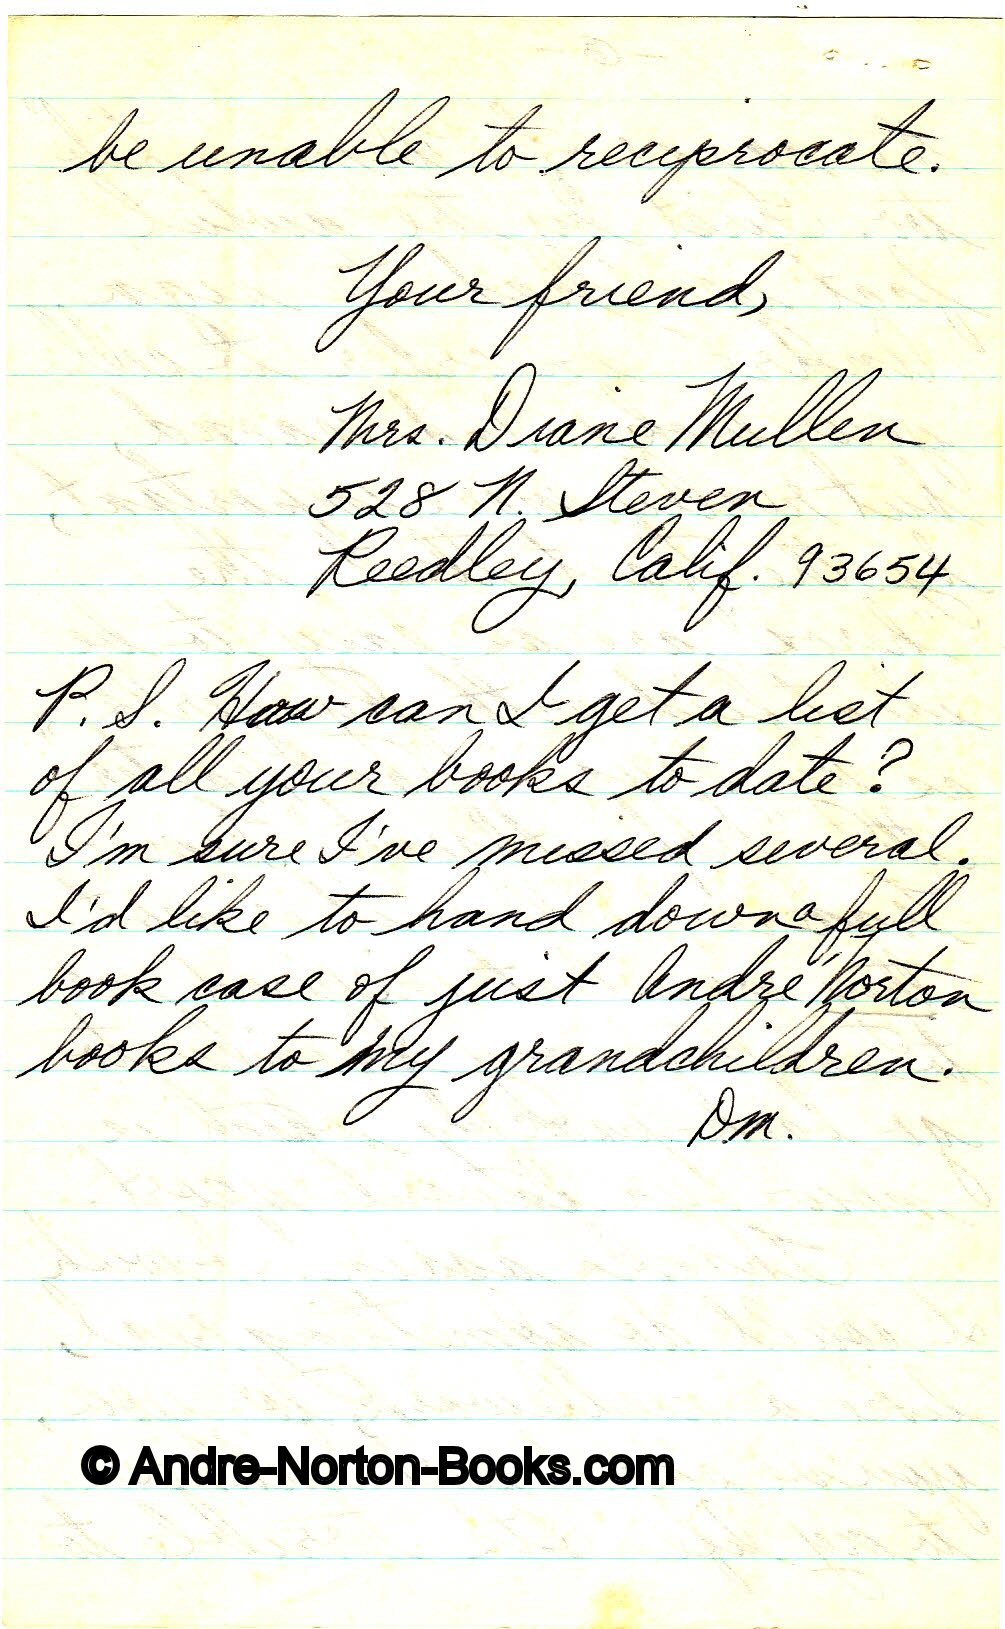 be unable to reciprocate.
Your friend,
Mrs. Diane Mullen
528 N. Steven
Reedley, Calif. 93654
P. S. How can I get a list
of all your books to date?
I'm sure I've missed several.
I'd like to hand down a full
book case of just Andre Norton
books to my grandchildren.
DM.
© Andre-Norton-Books.com